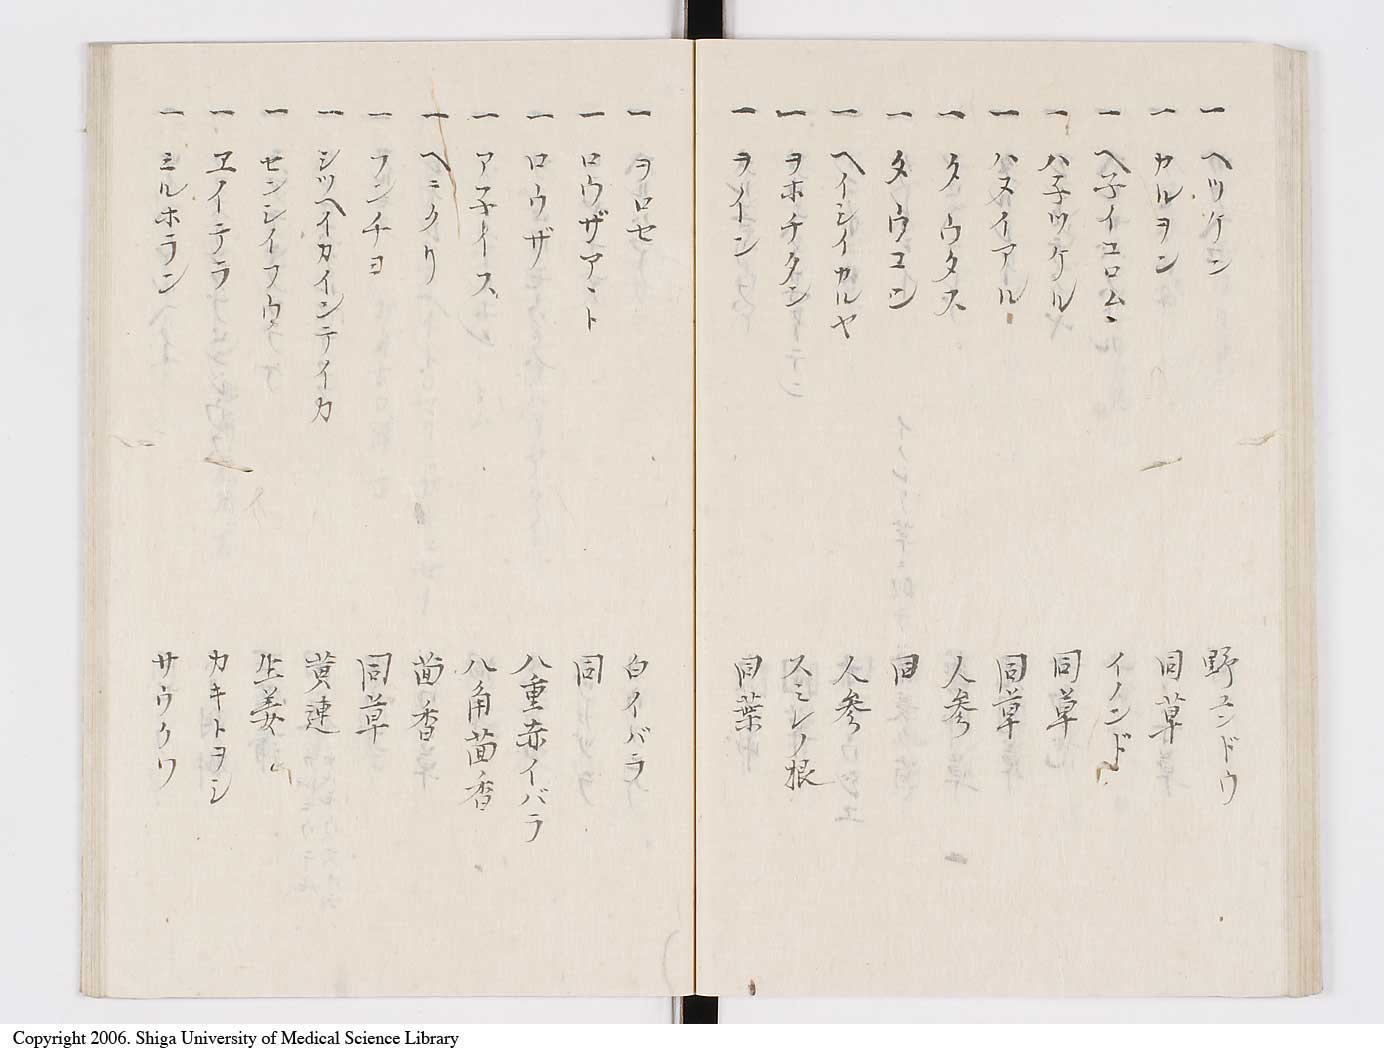 一 ヘツケン 野エンドウ
一 カルヲン 同草
一 ヘ子イコロムヽ イノンド
一 ハ子ツケル 同草
一 ハヌイアル 同草
一 タヽウタス 人參
一 タヽウコン 同
一 ヘイシイカルヤ 人參
一 ヲホチタン スミレノ根
一 ヲノイン 同葉
一 ヲロセ 白イバラ
一 ロウザアヽト 同
一 ロウザ 八重赤イバラ
一 ア子イス 八角茴香
一 ヘニクリ 茴香
一 フンチヨ 同草
一 シツヘイカインテイカ 黄連
一 センシイフウ 生姜
一 ヱイテラ カキトヲシ
一 ミルホラン サウクワ
Copyright 2006. Shiga University of Medical Science Library